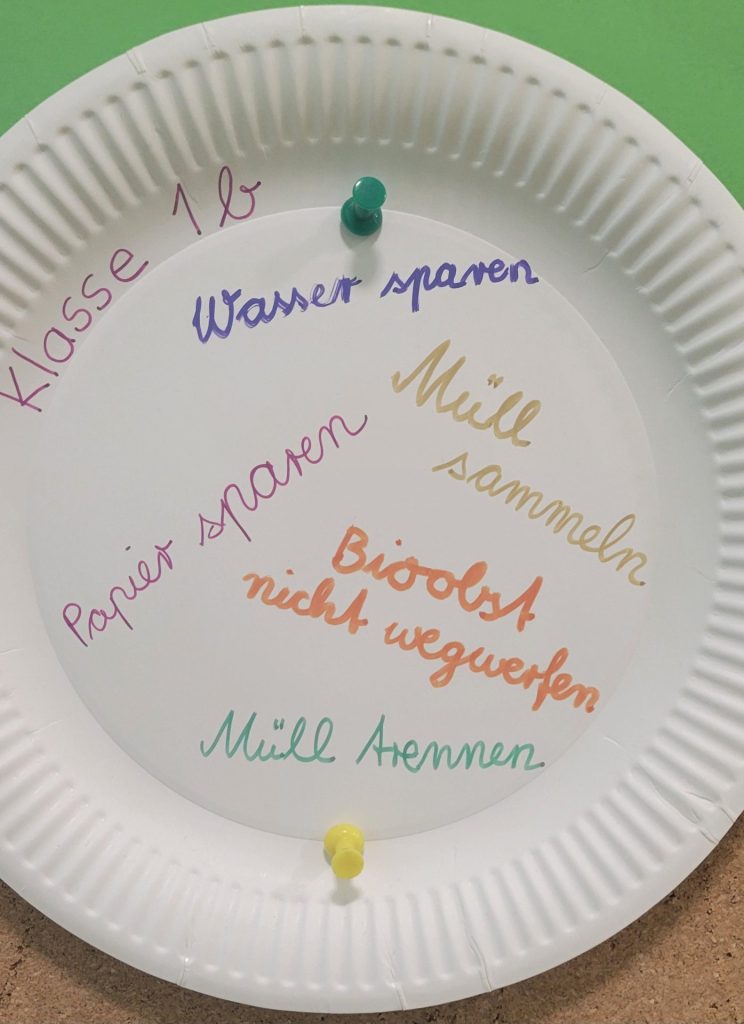 Klasse 1b
Wasser sparen
Müll
sammeln
Papier sparen
Bioobst
nicht wegwerfen
Müll trennen